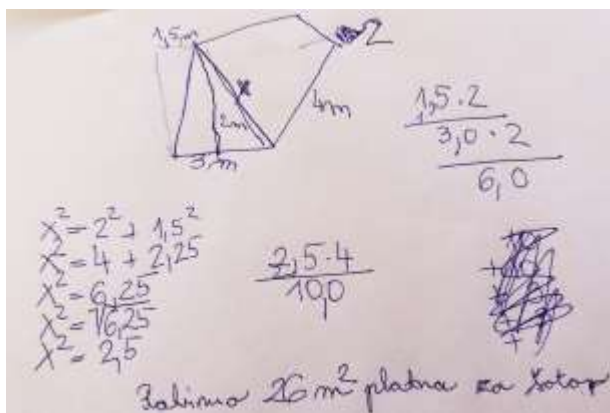 1,5m
2
x
2m
4m
3m
1,5 · 2
3,0 · 2
6,0
x² = 2² + 1,5²
x² = 4 + 2,25
x² = 6,25
x² = √6,25
x² = 2,5
2,5 · 4
10,0
Rabimo 26 m² platna za šotor